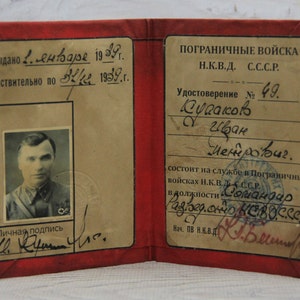 Выдано 2 января 1939 г.
ствительно по 31/XII 1939 г.
Личная подпись
ПОГРАНИЧНЫЕ ВОЙСКА
Н.К.В.Д. С.С.С.Р.
Удостоверение № 49.
Судаков
Иван
Петрович.
состоит на службе в Погранич
войсках Н.К.В.Д. С.С.С.Р.
в должности Командир
Нач. ПВ Н.К.В.Д.